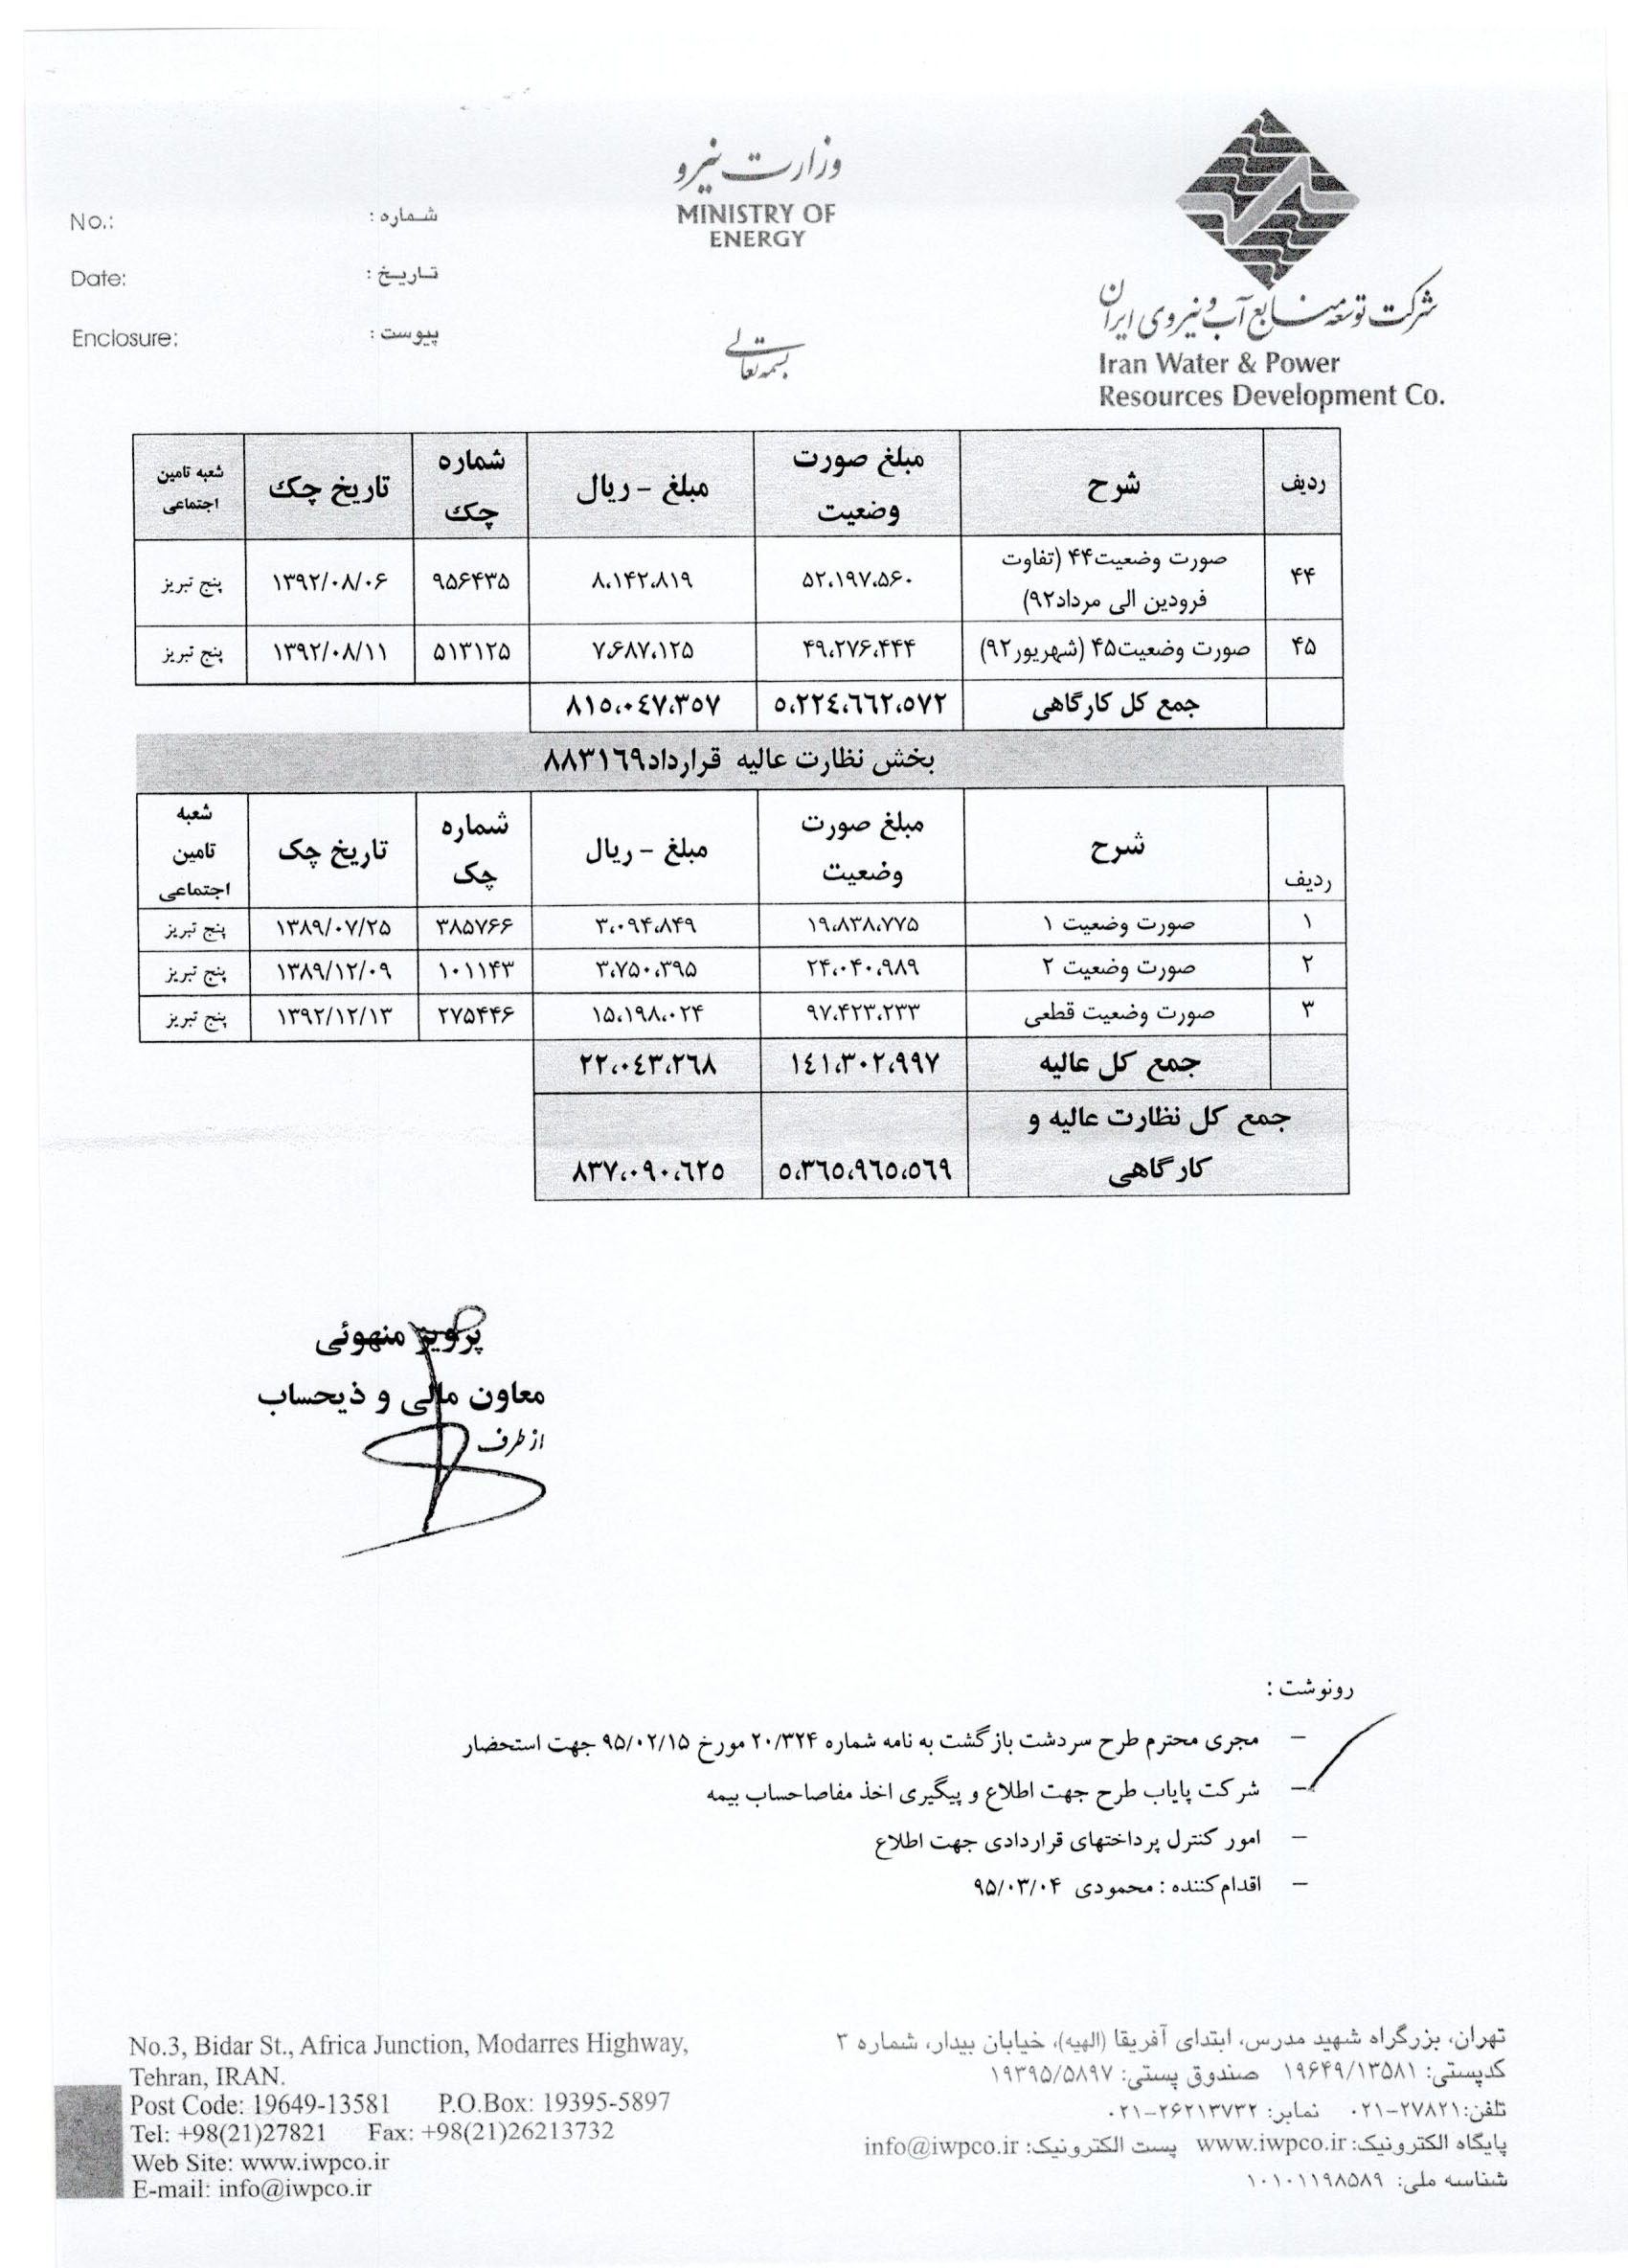 وزارت نیرو
MINISTRY OF
ENERGY
شرکت توسعه منابع آب و نیروی ایران
Iran Water & Power
Resources Development Co.
No.: شماره :
Date: تاریخ :
Enclosure: پیوست :
بسمه تعالی
ردیف شرح مبلغ صورت وضعیت مبلغ - ریال شماره چک تاریخ چک شعبه تامین اجتماعی
۴۴ صورت وضعیت۴۴ (تفاوت فرودین الی مرداد۹۲) ۵۲،۱۹۷،۵۶۰ ۸،۱۴۲،۸۱۹ ۹۵۶۴۳۵ ۱۳۹۲/۰۸/۰۶ پنج تبریز
۴۵ صورت وضعیت۴۵ (شهریور۹۲) ۴۹،۲۷۶،۴۴۴ ۷،۶۸۷،۱۲۵ ۵۱۳۱۲۵ ۱۳۹۲/۰۸/۱۱ پنج تبریز
جمع کل کارگاهی ٥،٢٢٤،٦٦٢،٥٧٢ ٨١٥،٠٤٧،٣٥٧
بخش نظارت عالیه قرارداد٨٨٣١٦٩
ردیف شرح مبلغ صورت وضعیت مبلغ - ریال شماره چک تاریخ چک شعبه تامین اجتماعی
۱ صورت وضعیت ۱ ۱۹،۸۳۸،۷۷۵ ۳،۰۹۴،۸۴۹ ۳۸۵۷۶۶ ۱۳۸۹/۰۷/۲۵ پنج تبریز
۲ صورت وضعیت ۲ ۲۴،۰۴۰،۹۸۹ ۳،۷۵۰،۳۹۵ ۱۰۱۱۴۳ ۱۳۸۹/۱۲/۰۹ پنج تبریز
۳ صورت وضعیت قطعی ۹۷،۴۲۳،۲۳۳ ۱۵،۱۹۸،۰۲۴ ۲۷۵۴۴۶ ۱۳۹۲/۱۲/۱۳ پنج تبریز
جمع کل عالیه ١٤١،٣٠٢،٩٩٧ ٢٢،٠٤٣،٢٦٨
جمع کل نظارت عالیه و
کارگاهی ٥،٣٦٥،٩٦٥،٥٦٩ ٨٣٧،٠٩٠،٦٢٥
پرویز منهوئی
معاون مالی و ذیحساب
از طرف
رونوشت :
- مجری محترم طرح سردشت بازگشت به نامه شماره ۲۰/۳۲۴ مورخ ۹۵/۰۲/۱۵ جهت استحضار
- شرکت پایاب طرح جهت اطلاع و پیگیری اخذ مفاصاحساب بیمه
- امور کنترل پرداختهای قراردادی جهت اطلاع
- اقدام‌کننده : محمودی ۹۵/۰۳/۰۴
تهران، بزرگراه شهید مدرس، ابتدای آفریقا (الهیه)، خیابان بیدار، شماره ۳
کدپستی: ۱۹۶۴۹/۱۳۵۸۱ صندوق پستی: ۱۹۳۹۵/۵۸۹۷
تلفن: ۰۲۱-۲۷۸۲۱ نمابر: ۰۲۱-۲۶۲۱۳۷۳۲
پایگاه الکترونیک: www.iwpco.ir پست الکترونیک: info@iwpco.ir
شناسه ملی: ۱۰۱۰۱۱۹۸۵۸۹
No.3, Bidar St., Africa Junction, Modarres Highway,
Tehran, IRAN.
Post Code: 19649-13581 P.O.Box: 19395-5897
Tel: +98(21)27821 Fax: +98(21)26213732
Web Site: www.iwpco.ir
E-mail: info@iwpco.ir